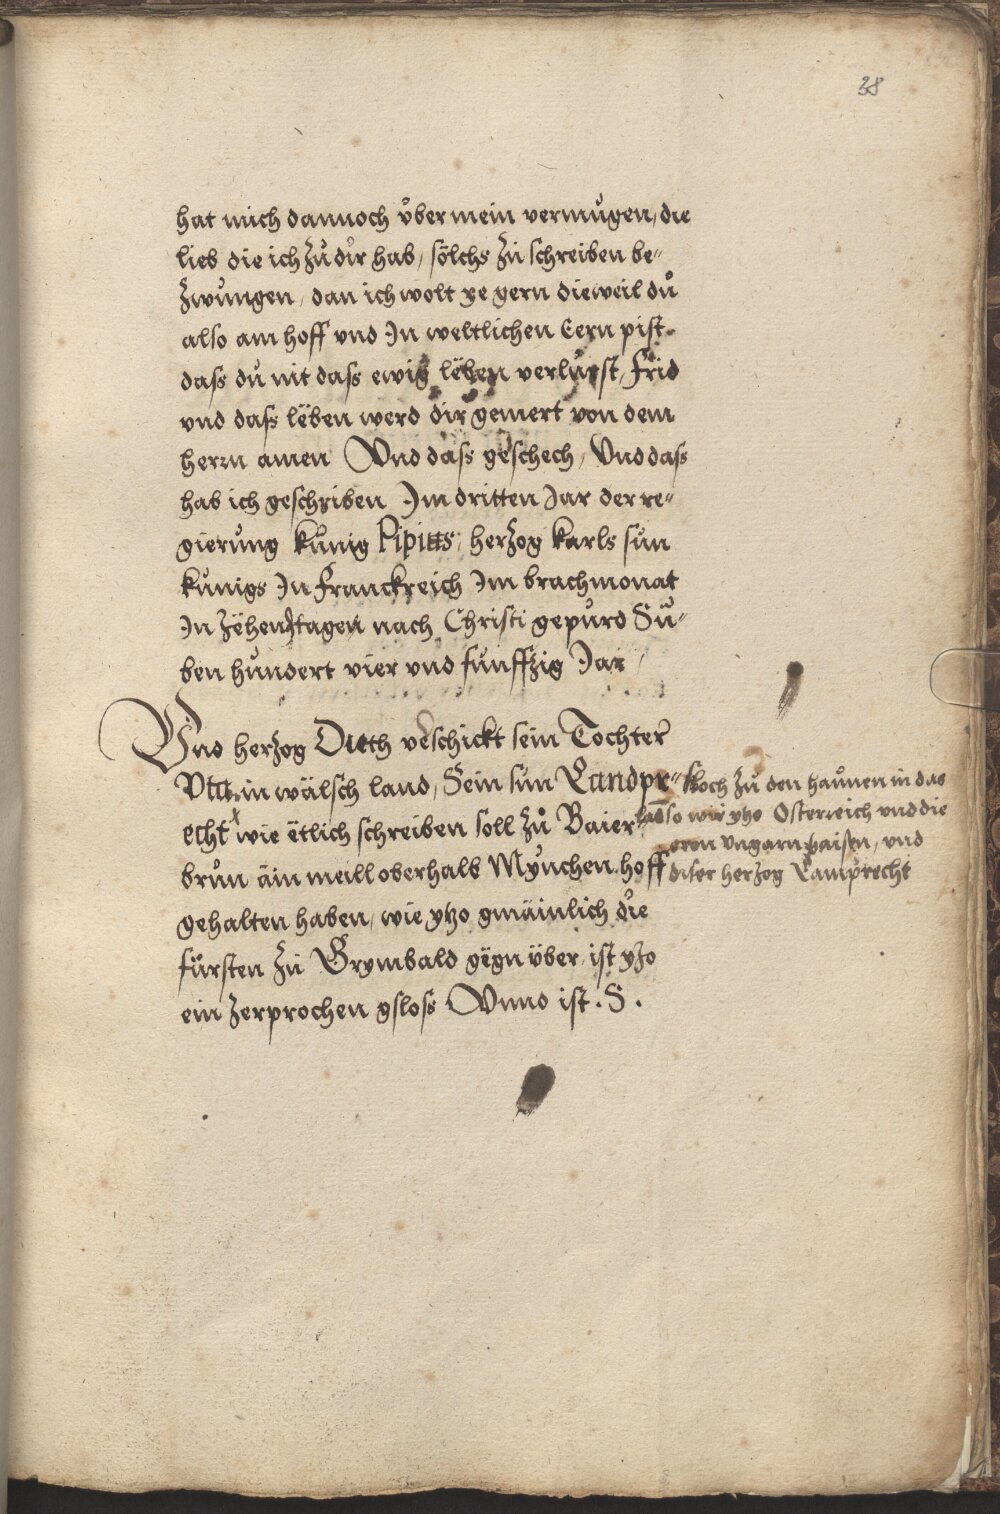 38
hat mich dannoch über mein vermugen, die
lieb die ich zů dir hab, sölchs zů schreiben be-
zwungen, dan ich wolt ye gern dieweil dů
also am hoff vnd In weltlichen Eern pist
dass dů nit dass ewig lëben verlurst, Frid
vnd dass lëben werd dir gemert von dem
herrn amen Vnd dass geschech, Vnd dass
hab ich geschriben Im dritten Jar der re-
gierung kůnig Pipins, herzog karls sun
kůnigs In Franckreich Im brachmonat
In zëhen tagen nach Christi gepurd Sů-
ben hundert vier vnd funffzig Jar
Vnd herzog Dieth verschickt sein Tochter
Vta in wälsch land, Sein sun Landpr-
echt wie ëtlich schreiben soll zů Baier-
brun ain meill oberhalb Mÿnchen hoff
gehalten haben, wie ytzo gmäinlich die
fürsten zů Grymbald gëgn über ist ytzo
ein zerprochen gsloss Vnnd ist . S .
floch zů den haůnen in das
land so wir ytzo Osterreich vnd die
Vngarn haissen, vnd
diser herzog Lamprecht